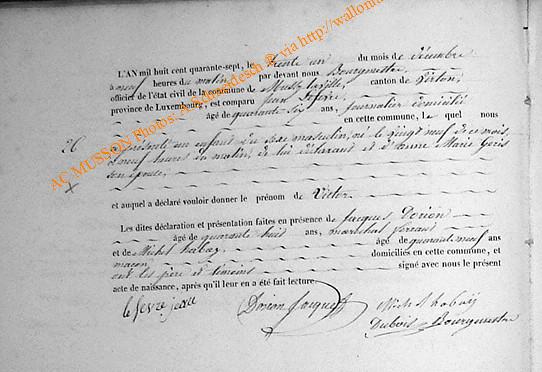 L'AN mil huit cent quarante-sept, le trente un du mois de décembre
à neuf heures du matin par devant nous Bourgmestre,
officier de l'état civil de la commune de Mussy-la-ville, canton de Virton,
province de Luxembourg, est comparu Jean
âgé de quarante six ans, journalier domicilié
en cette commune, le quel nous
26
a présenté un enfant du sexe masculin, né le vingt neuf de ce mois,
à neuf heures du matin, de lui déclarant et d'anne Marie Goris
son épouse,
et auquel a déclaré vouloir donner le prénom de Victor
Les dites déclaration et présentation faites en présence de Jacques Dorion
âgé de quarante huit ans, maréchal ferrant
et de Michel âgé de quarante neuf ans
maçon domiciliés en cette commune, et
ont les père et témoins signé avec nous le présent
acte de naissance, après qu'il leur en a été fait lecture.
le fevre jean Dorion Jacques Mich
Dubois Bourgmestre
AC MUSSON Photos: A. © via http://wallonia